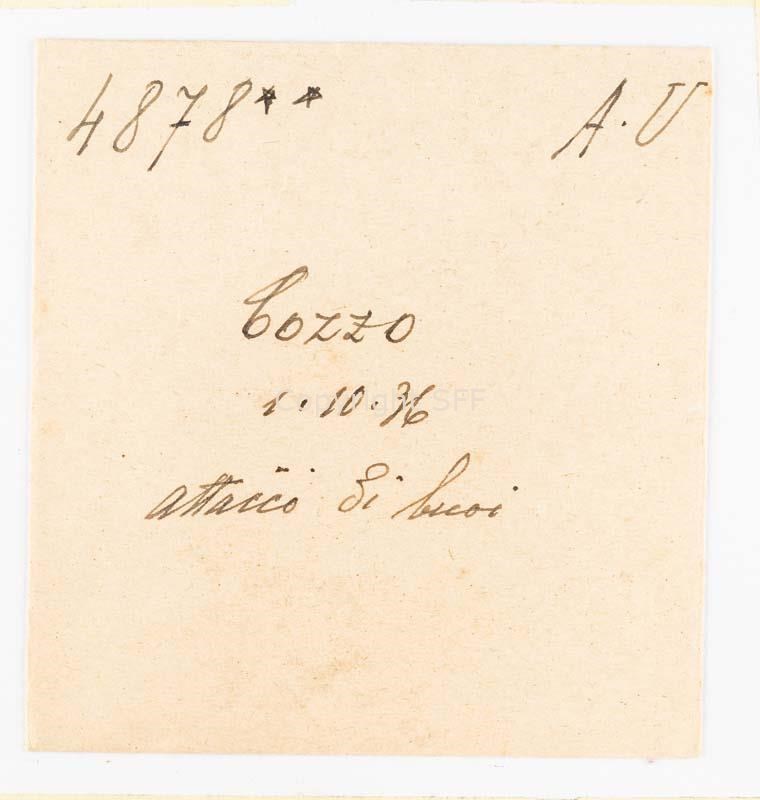 4878** A.U
Cozzo
1.10.36
Copyright SFF
attacco di buoi